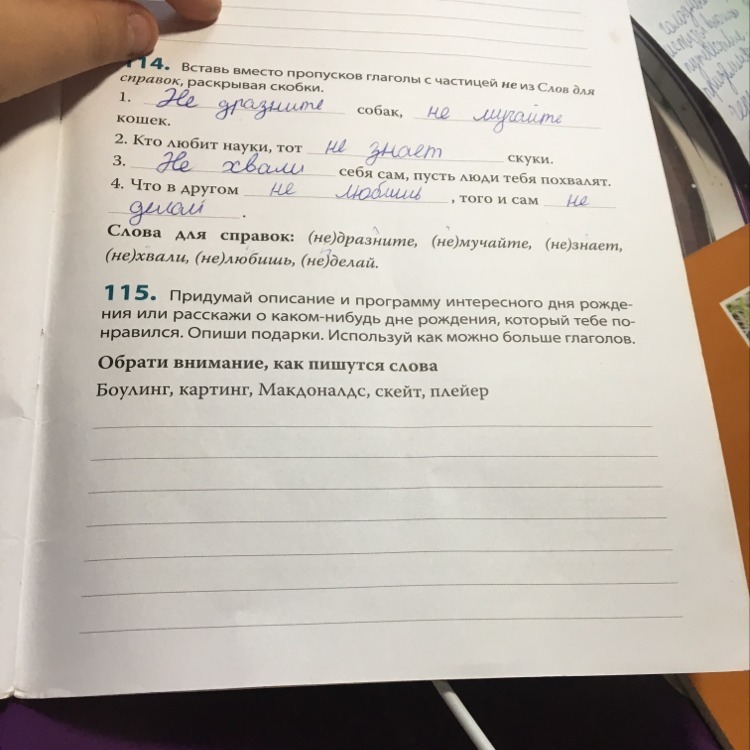 114. Вставь вместо пропусков глаголы с частицей не из Слов для
справок, раскрывая скобки.
1. Не дразните собак, не мучайте
кошек.
2. Кто любит науки, тот не знает скуки.
3. Не хвали себя сам, пусть люди тебя похвалят.
4. Что в другом не любишь, того и сам не
делай.
Слова для справок: (не)дразните, (не)мучайте, (не)знает,
(не)хвали, (не)любишь, (не)делай.
115. Придумай описание и программу интересного дня рожде-
ния или расскажи о каком-нибудь дне рождения, который тебе по-
нравился. Опиши подарки. Используй как можно больше глаголов.
Обрати внимание, как пишутся слова
Боулинг, картинг, Макдоналдс, скейт, плейер